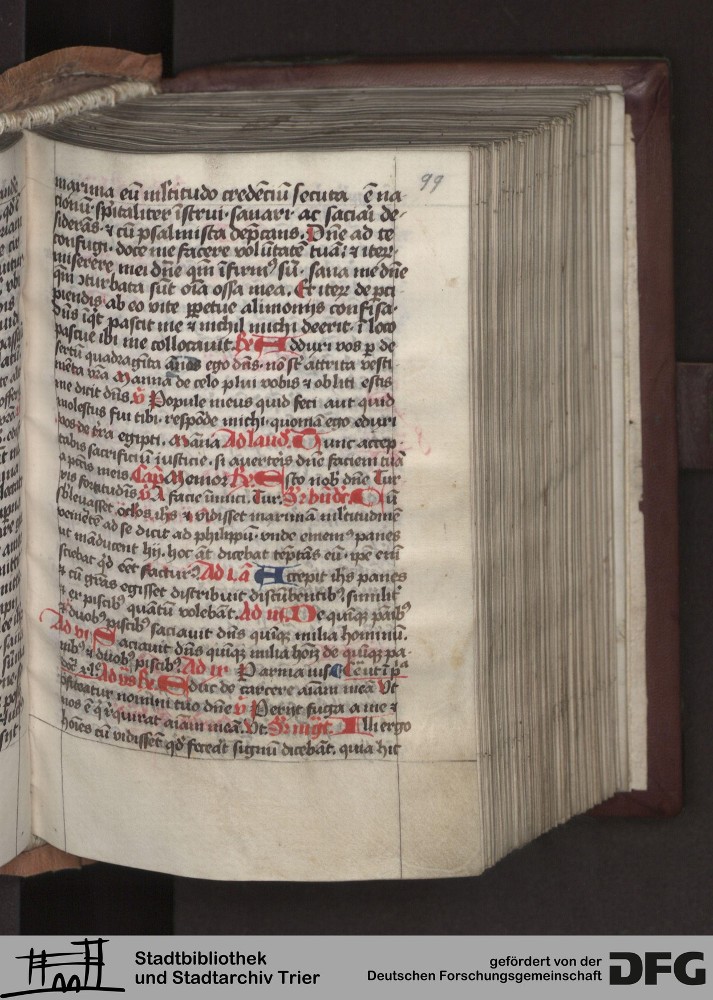 99
maxima eū ml̄titudo credēciū secuta ē na
cionū · spūaliter īstrui · sanari · ac saciari de-
siderās · ⁊ cū psalmista dep̄cans. Dn̄e ad te
confugi · doce me facere volūtatē tuā: ⁊ iterz
miserere mei dn̄e qm̄ īfirmꝰ sū · sana me dn̄e
qm̄ ꝯturbata sūt oīa ossa mea. Et iterz de p̄ci
piendis ab eo vite ꝑpetue alimoniis confisa ·
Dn̄s īqt pascit me ⁊ nichil michi deerit · ī loco
pascue ibi me collocauit. R̄ Adduxi vos ꝑ de
sertū quadragīta annos ego dn̄s · nō st̄ attrita vesti
mēta vr̄a Manna de celo plui vobis ⁊ obliti estis
me dicit dn̄s. v̄ Popule meus quid feci aut quid
molestus fui tibi · respōde michi · quoniā ego eduxi
vos de tr̄a egipti. Māna Ad laud. Tunc accep-
tabis sacrificiū iusticie · si auerteris dn̄e faciem tuā
a p̄ctis meis. Cap̄ Memor R̄ Esto nob̄ dn̄e Tur
ris fortitudīs v̄ A facie inimici. Tur. Sr̄ bn̄dc̄. Cū
sb̄leuasset oclos ihs̄ ⁊ vidisset maximā ml̄titudinē
veniētē ad se dicit ad philippū · vnde ememꝰ panes
ut māducent hij. hoc āt dicebat tēptās eū · ip̄e eni
sciebat qd̄ eēt facturꝰ. Ad i. ā Accepit ihs̄ panes
⁊ cū grās egisset distribuit discūbentibꝰ similit̄
⁊ ex piscibꝰ quātū volebāt. Ad iii. De quīqz pāibꝰ
⁊ duobꝰ piscibꝰ saciauit dn̄s quīqz milia hominū.
Ad vi Saciauit dn̄s quīqz milia hoīm de quīqz pa-
nibꝰ ⁊ duobꝰ piscibꝰ. Ad ix
Ad vs̄ R̄ Educ de carcere aīam meā Vt
ꝯfiteatur nomini tuo dn̄e v̄ Perijt fuga a me ⁊
nos ē q̄ reqͥrat aīam meā. Vt. Sr̄ mgt̄. Illi ergo
hoīes cū vidissēt qd̄ fecerat signū dicebāt. quia hic
Stadtbibliothek
und Stadtarchiv Trier
gefördert von der
Deutschen Forschungsgemeinschaft
DFG